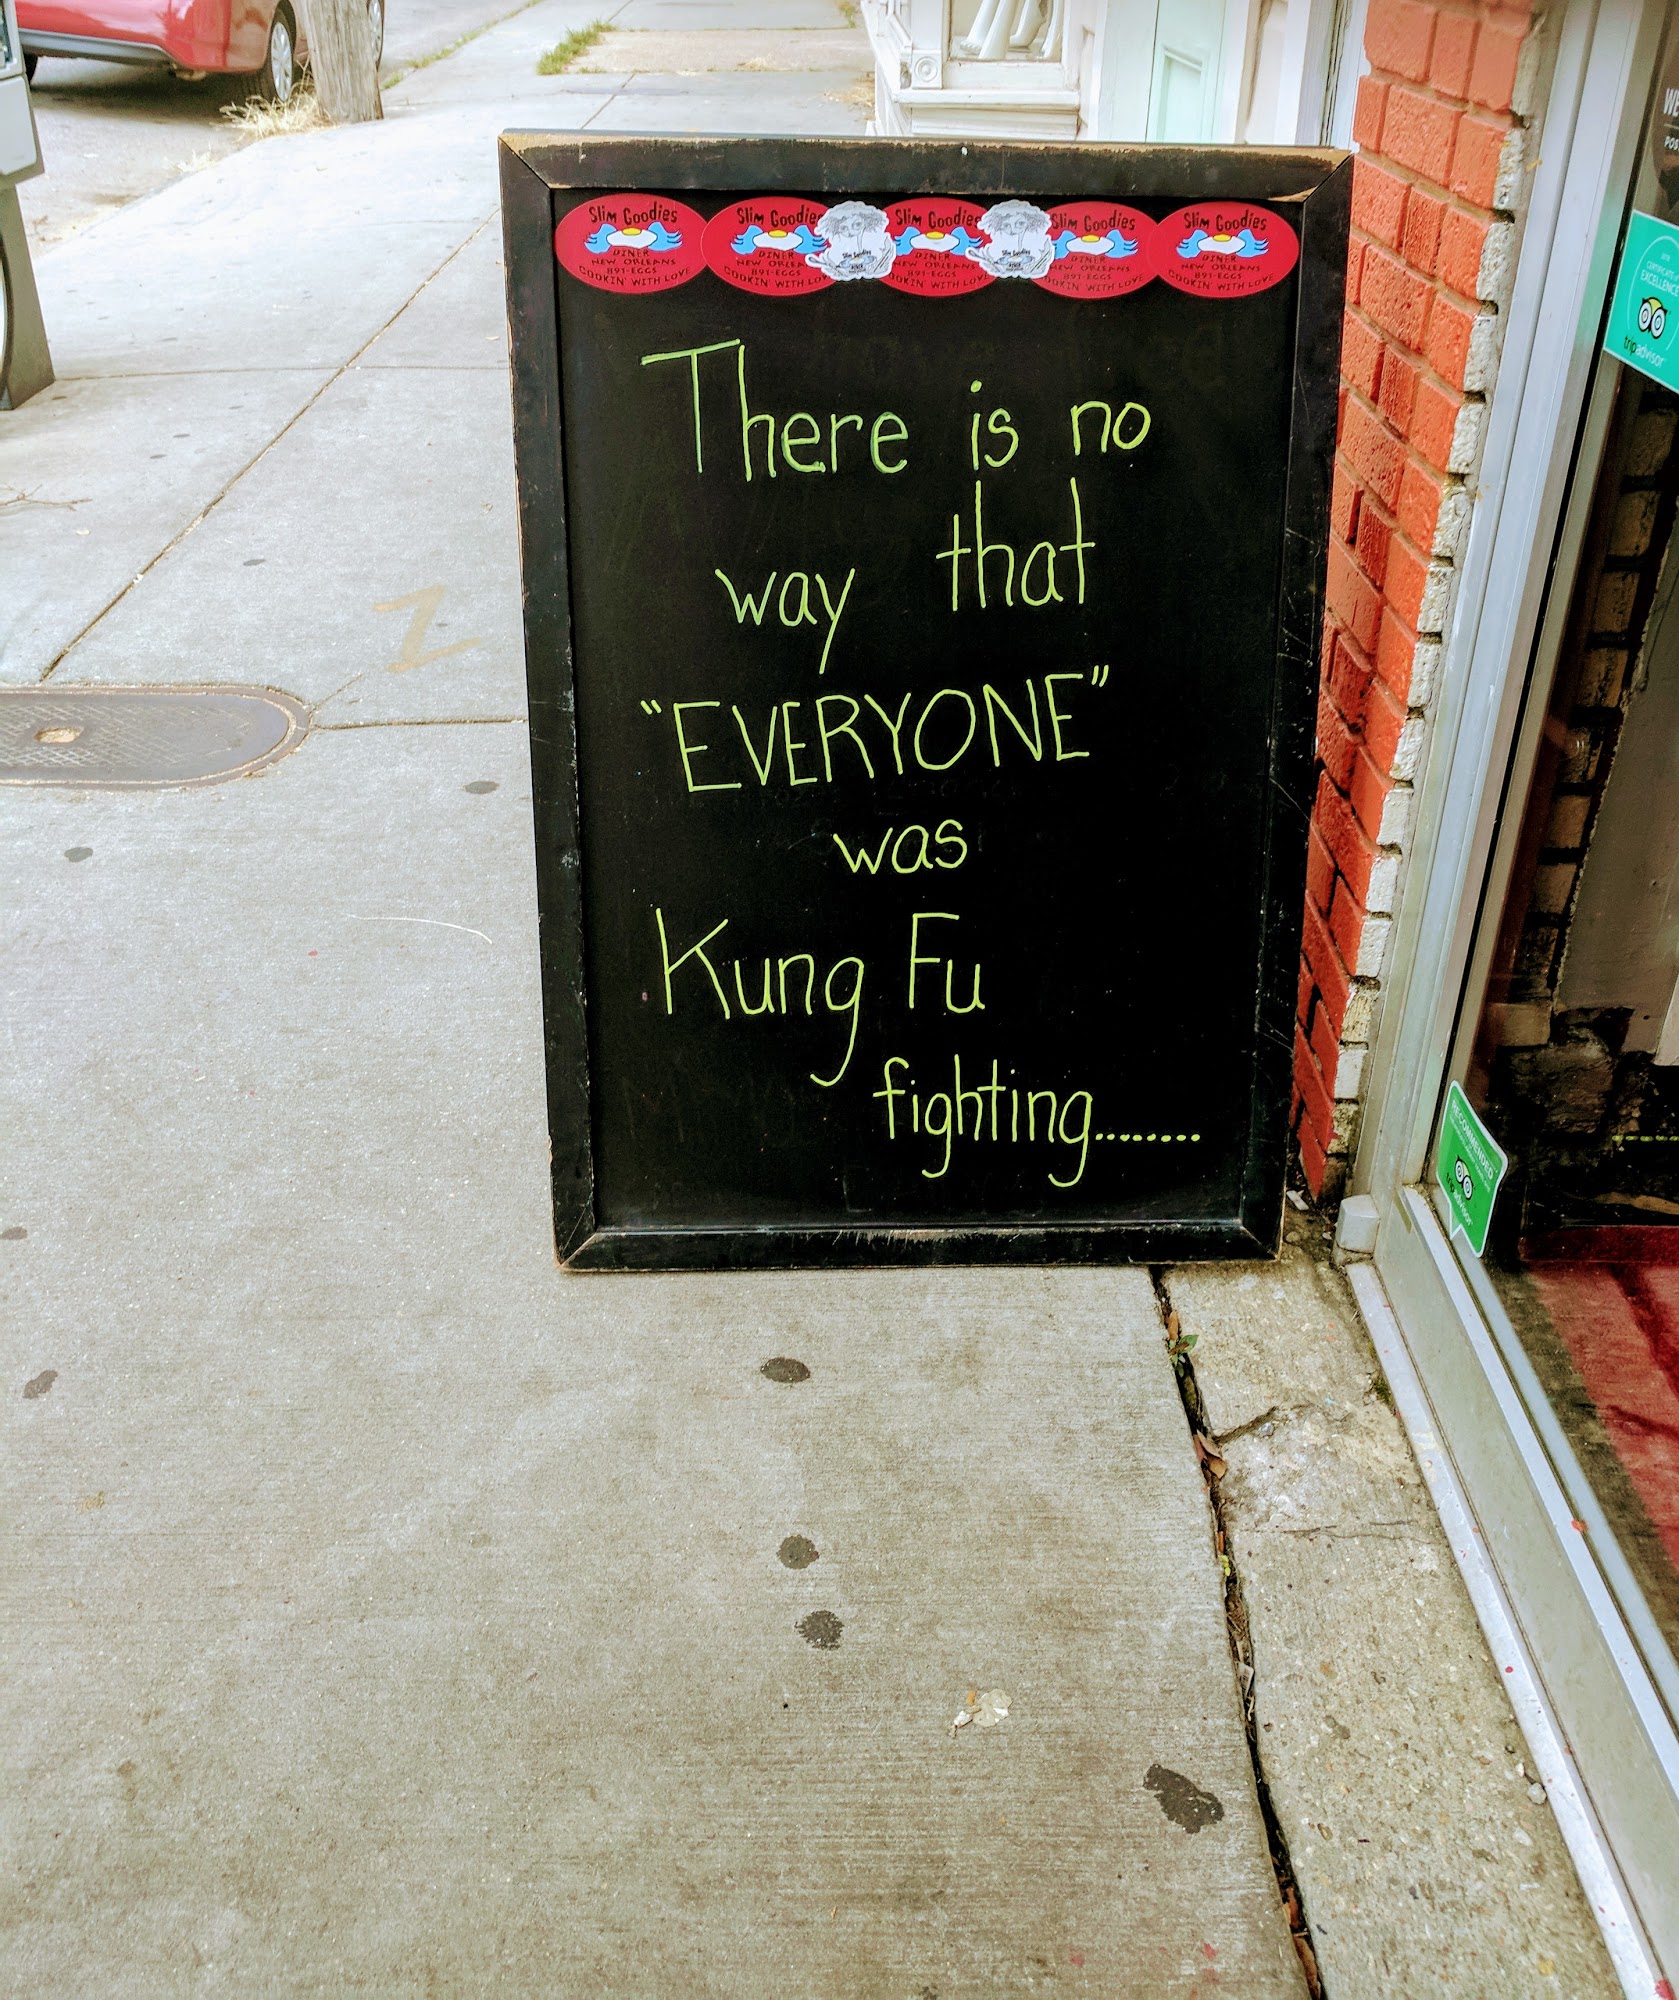 Slim Goodies
DINER
NEW ORLEANS
891-EGGS
COOKIN' WITH LOVE
Slim Goodies
DINER
NEW ORLEA
891-EGGS
COOKIN' WITH LO
Slim Goodies
DINER
NEW ORLEANS
891-EGGS
COOKIN' WITH LOV
Slim Goodies
DINER
NEW ORLEANS
891-EGGS
COOKIN' WITH LOVE
Slim Goodies
DINER
NEW ORLEANS
891-EGGS
COOKIN' WITH LOVE
There is no
way that
"EVERYONE"
was
Kung Fu
fighting........
CERTIFICATE of
EXCELLENCE
tripadvisor
RECOMMENDED
tripadvisor
Z